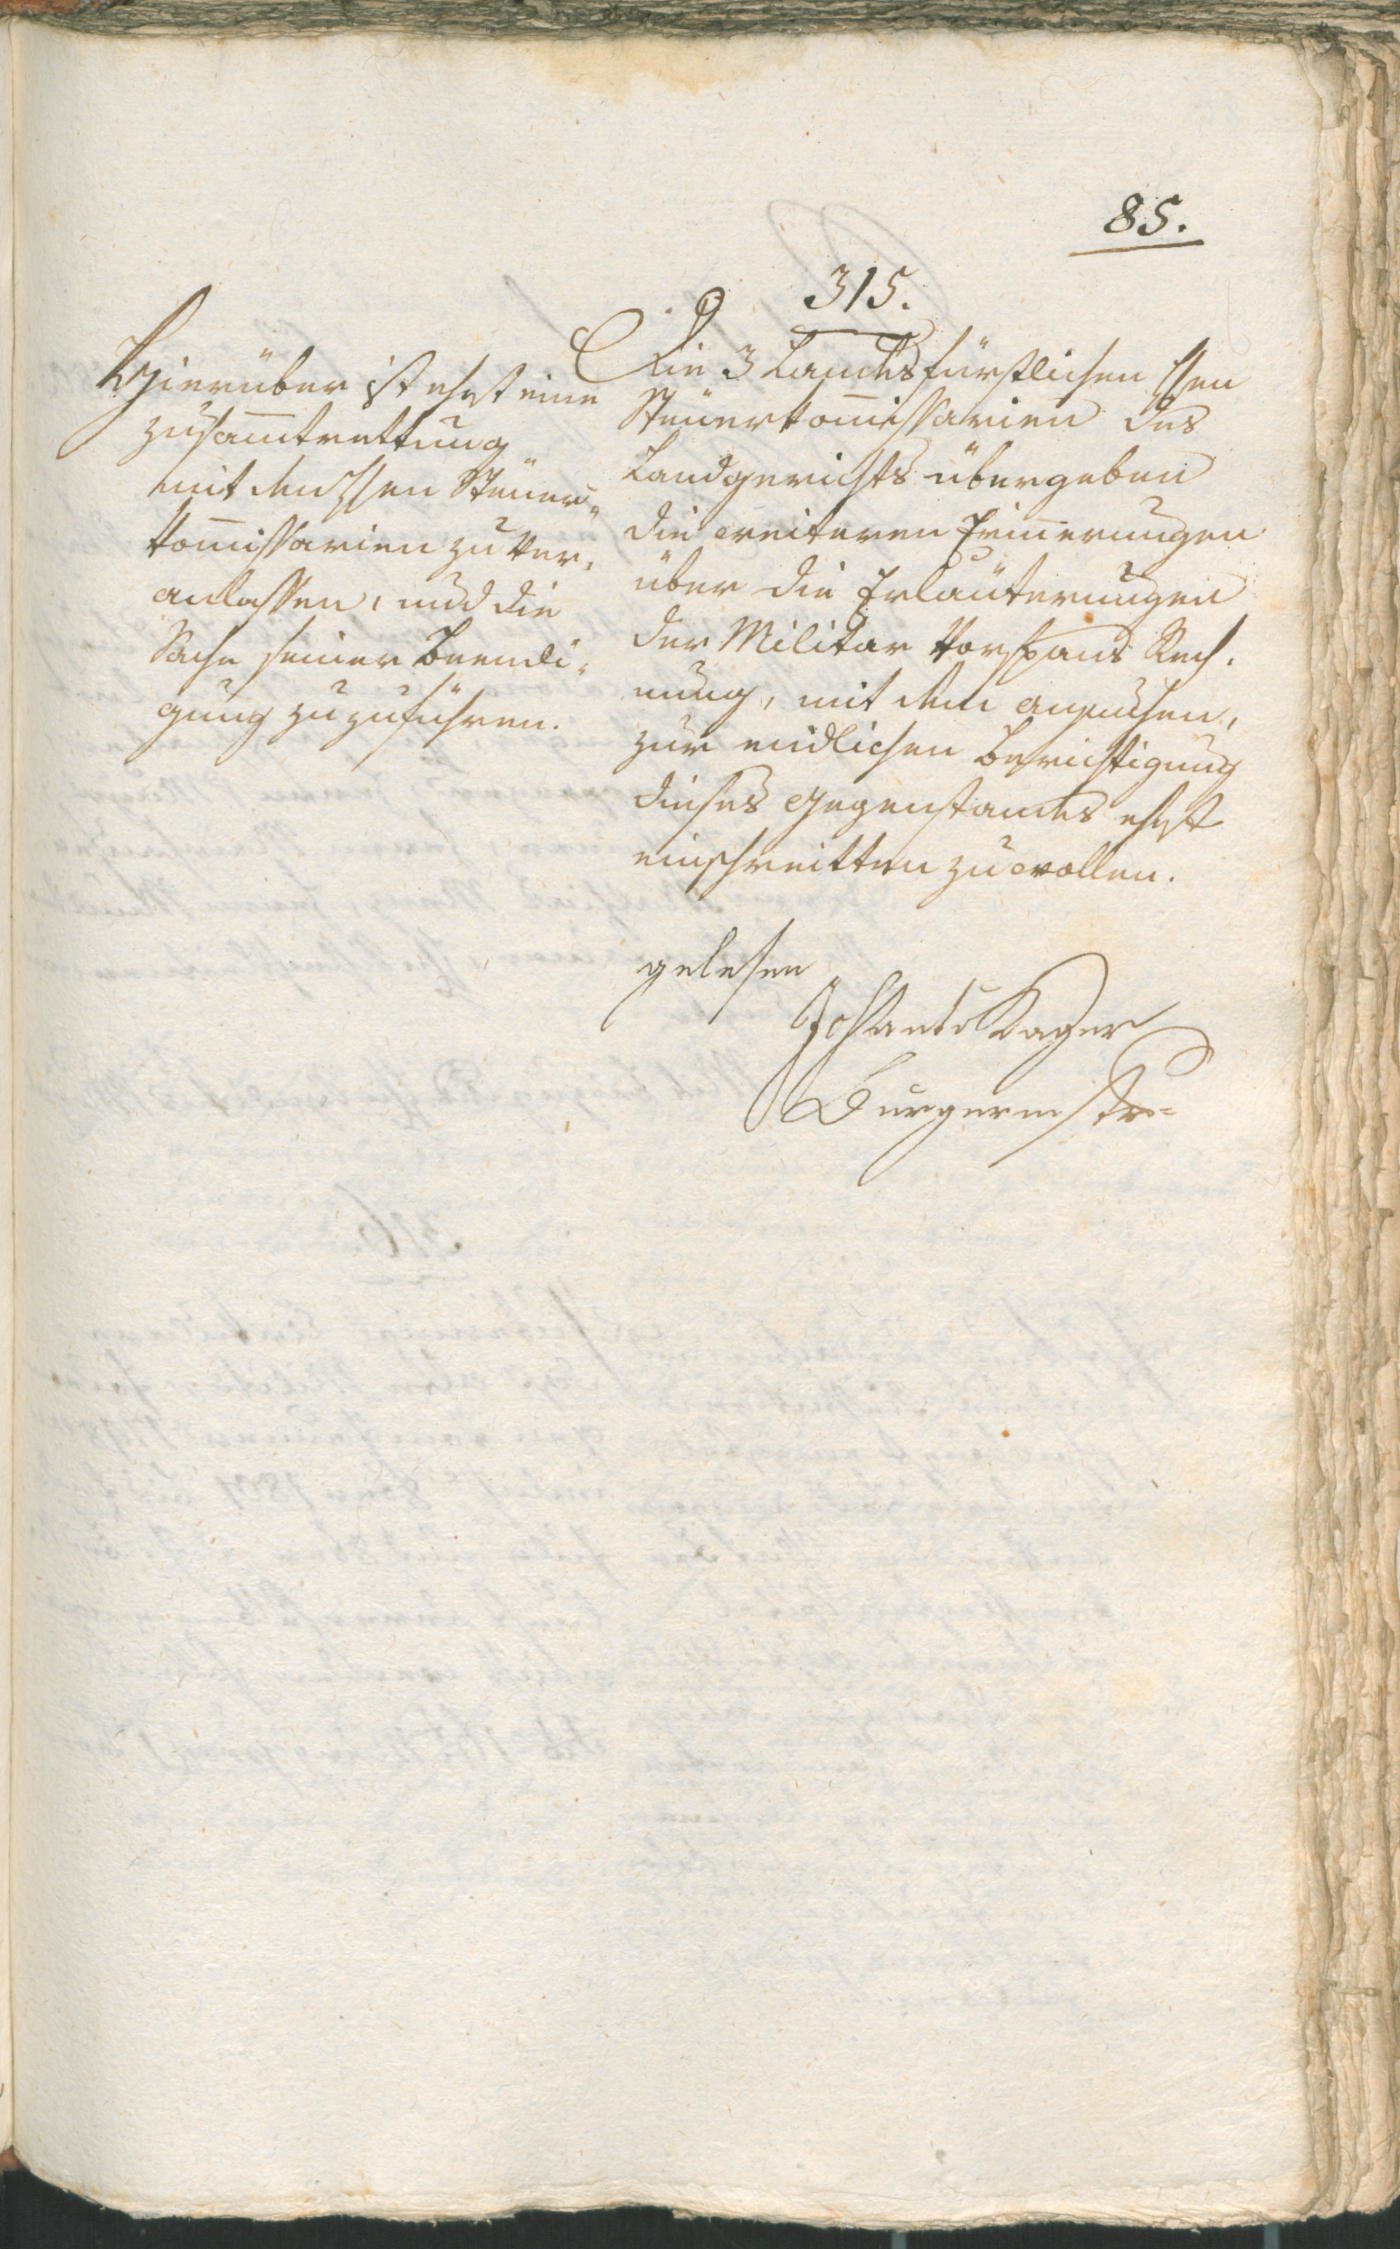 85.
315.
Hierüber ist ehest eine
zusam̄trettung
mit den Hen Steuer=
kom̄issarien zu ver,
anlassen, und die
Sache seiner Beendi,
gung zuzuführen.
Die 3 Landesfürstlichen Hen
Steuerkom̄issarien des
Landgerichts übergeben
die weiteren Erin̄erungen
über die Erläuterungen
der Militar Vorspans Rech,
nung, mit dem ansuchen,
zur endlichen Berichtigung
dieses Gegenstandes ehest
einschreitten zu wollen.
gelesen
Joh Anto Kager
Burgermstr=